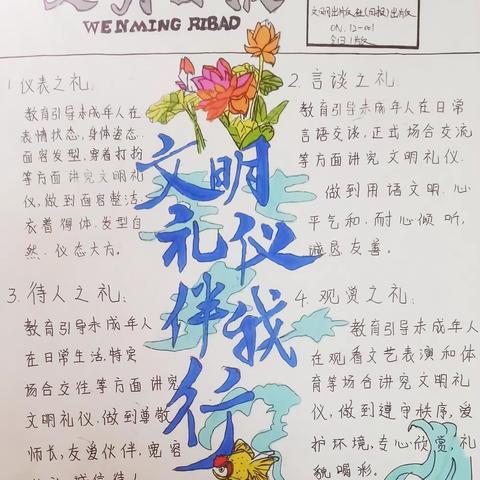 文明日报
WENMING RIBAO
文明出版社(日报)出版
ON.12-001
1.仪表之礼:
教育引导未成年人在
表情状态,身体姿态.
面容发型,穿着打扮
等方面讲究文明礼
仪,做到面容整洁,
衣着得体.发型自
然.仪态大方。
2.言谈之礼:
教育引导未成年人在日常
言语交谈.正式场合交流
等方面讲究文明礼仪.
做到用语文明.心
平气和.耐心倾听,
诚恳友善。
文明
礼仪
伴我
行
3.待人之礼:
教育引导未成年人
在日常生活,特定
场合交往等方面讲究
文明礼仪.做到尊敬
师长,友爱伙伴,宽容
4.观赏之礼:
教育引导未成年人
在观看文艺表演和体
育等场合讲究文明礼
仪,做到遵守秩序,爱
护环境,专心欣赏,礼
貌喝彩。